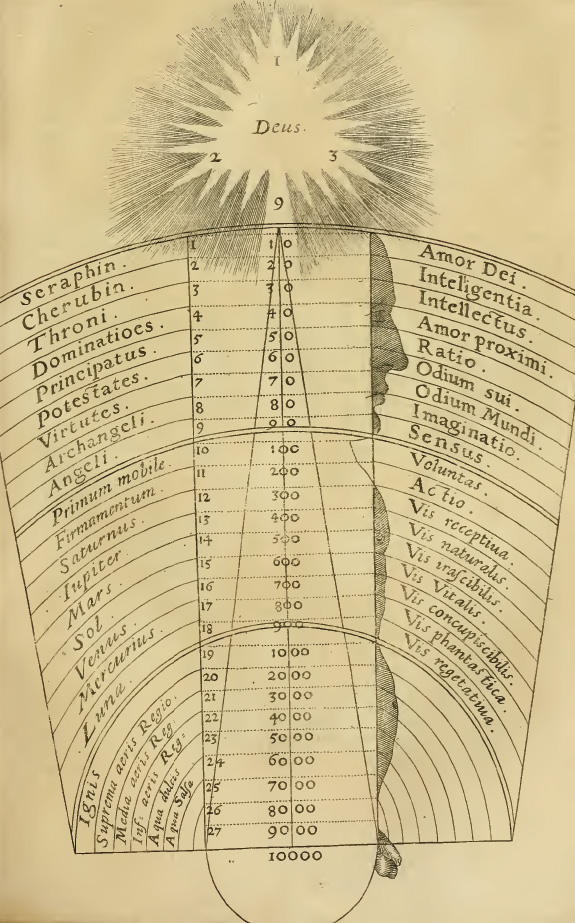 1
Deus.
2 3
9
Seraphin.
Cherubin.
Throni.
Dominatioēs.
Principatus.
Potestates.
Virtutes.
Archangeli.
Angeli.
Primum mobile.
Firmamentum.
Saturnus.
Iupiter.
Mars.
Sol.
Venus.
Mercurius.
Luna.
Ignis
Suprema aeris Regio.
Media aeris Reg.
Inf: aeris Reg:
Aqua dulcis
Aqua Salsa
1 10
2 20
3 30
4 40
5 50
6 60
7 70
8 80
9 90
10 100
11 200
12 300
13 400
14 500
15 600
16 700
17 800
18 900
19 1000
20 2000
21 3000
22 4000
23 5000
24 6000
25 7000
26 8000
27 9000
10000
Amor Dei.
Inteligentia.
Intellectus.
Amor proximi.
Ratio.
Odium sui.
Odium Mundi.
Imaginatio.
Sensus.
Voluntas.
Actio.
Vis receptiua.
Vis naturalis.
Vis irascibilis.
Vis Vitalis.
Vis concupiscibilis.
Vis phantastica.
Vis regetatiua.